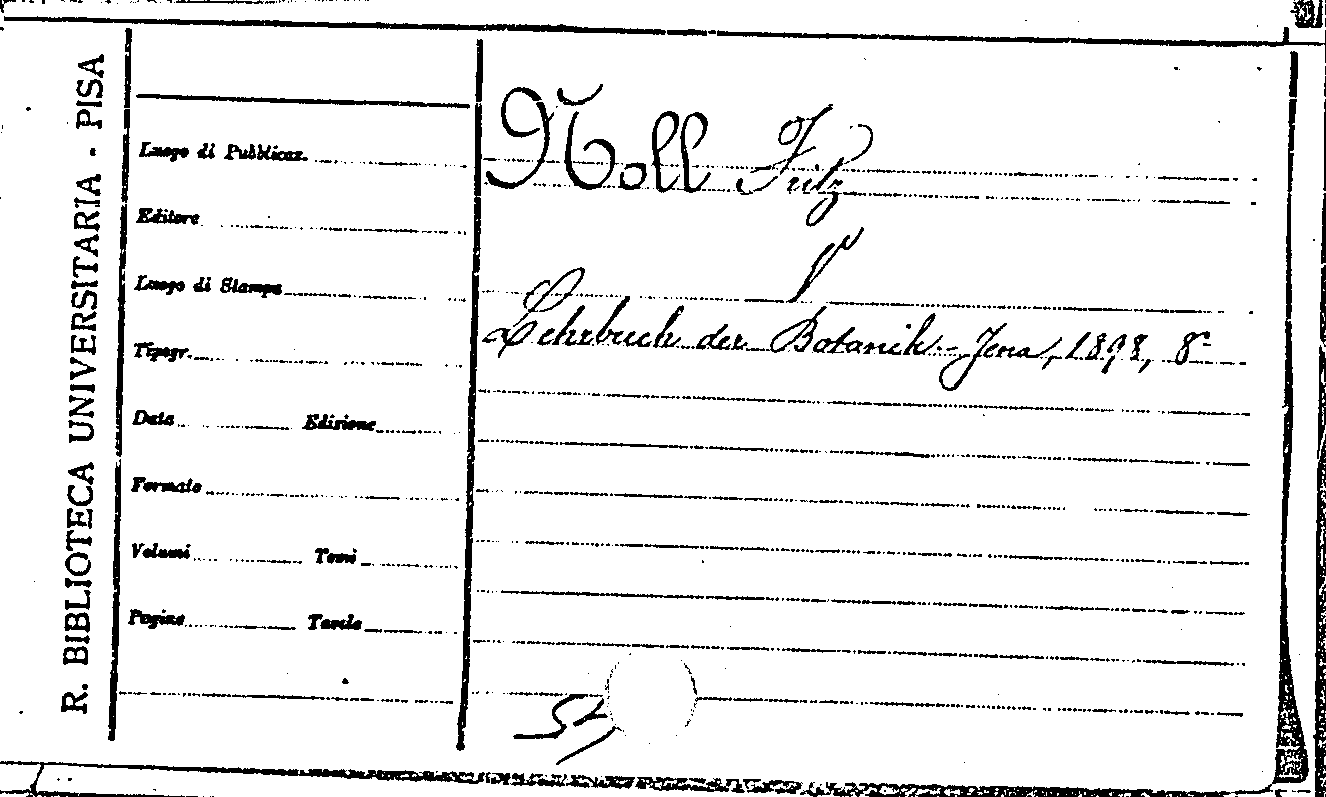 R. BIBLIOTECA UNIVERSITARIA - PISA
Luogo di Pubblicaz.
Editore
Luogo di Stampa
Tipogr.
Data Edizione
Formato
Volumi Tomi
Pagine Tavole
Noll Fritz
Lehrbuch der Botanik - Jena, 1898, 8°